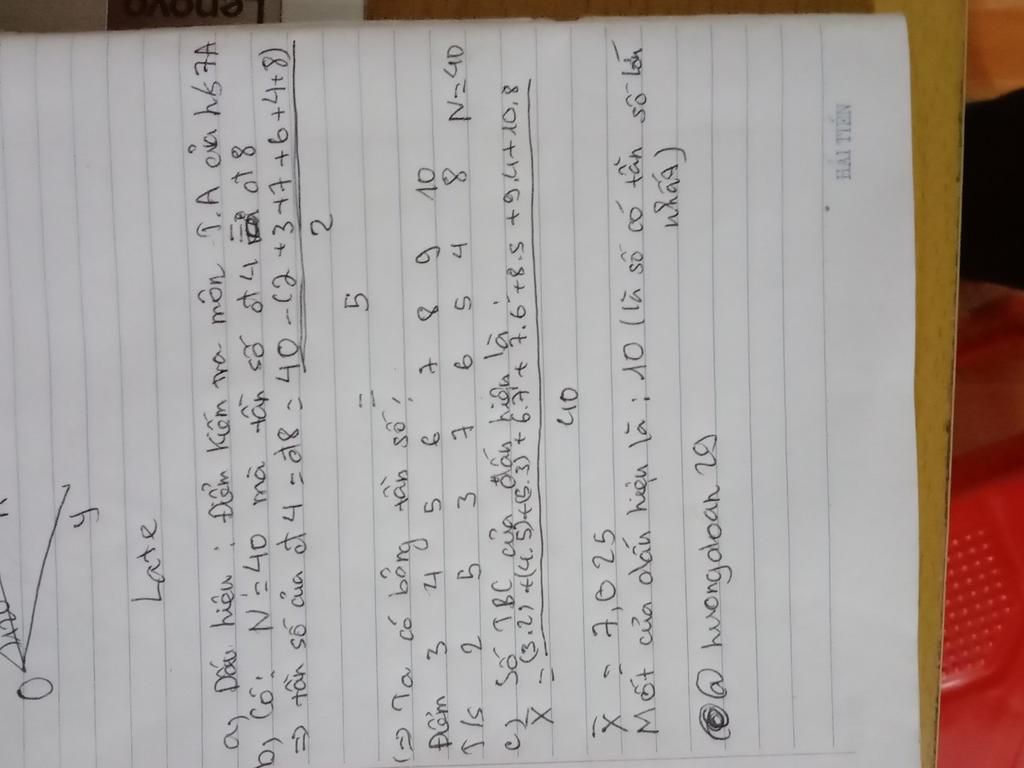 Lenovo
O
y
Late
a) Dấu hiệu : điểm kiểm tra môn T.A của h/s 7A
b) Có: N = 40 mà tần số đ 4 = đ 8
=> tần số của đ 4 = đ8 = 40 - (2 + 3 + 7 + 6 + 4 + 8)
2
= 5
(=) Ta có bảng tần số:
Điểm 3 4 5 6 7 8 9 10
T/s 2 5 3 7 6 5 4 8 N=40
c) Số TBC của dấu hiệu là:
X = (3.2) + (4.5) + (5.3) + 6.7 + 7.6 + 8.5 + 9.4 + 10.8
40
X = 7,025
Mốt của dấu hiệu là : 10 (là số có tần số lớn
nhất)
@ huongdoan29
HẢI TIẾN